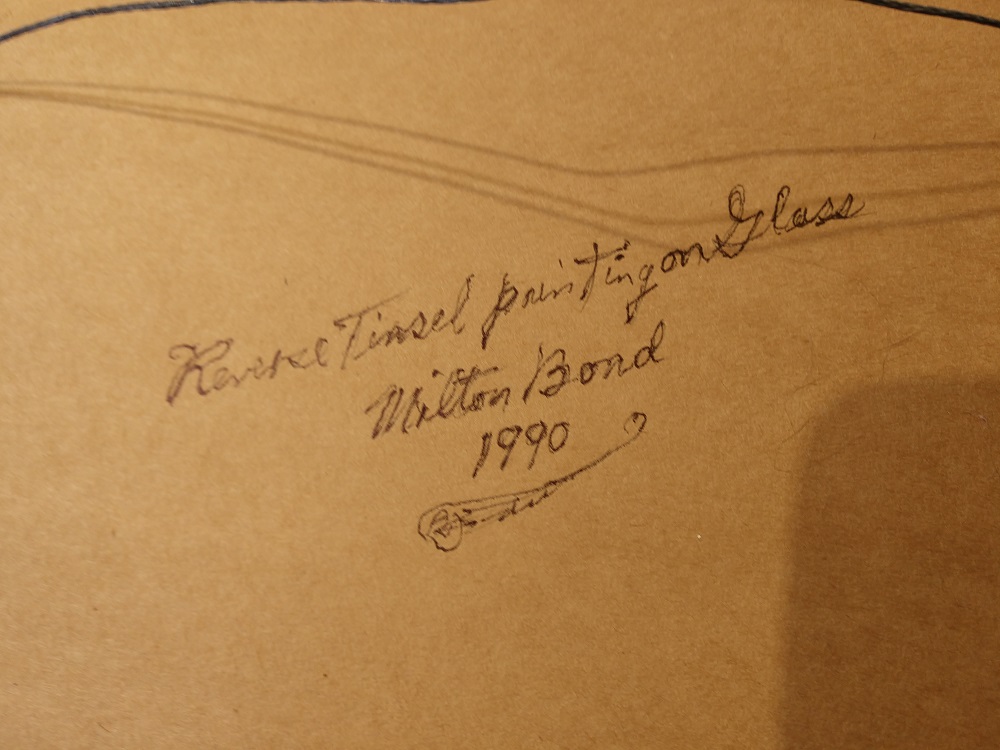 Reverse Tinsel printing on Glass
Milton Bond
1990